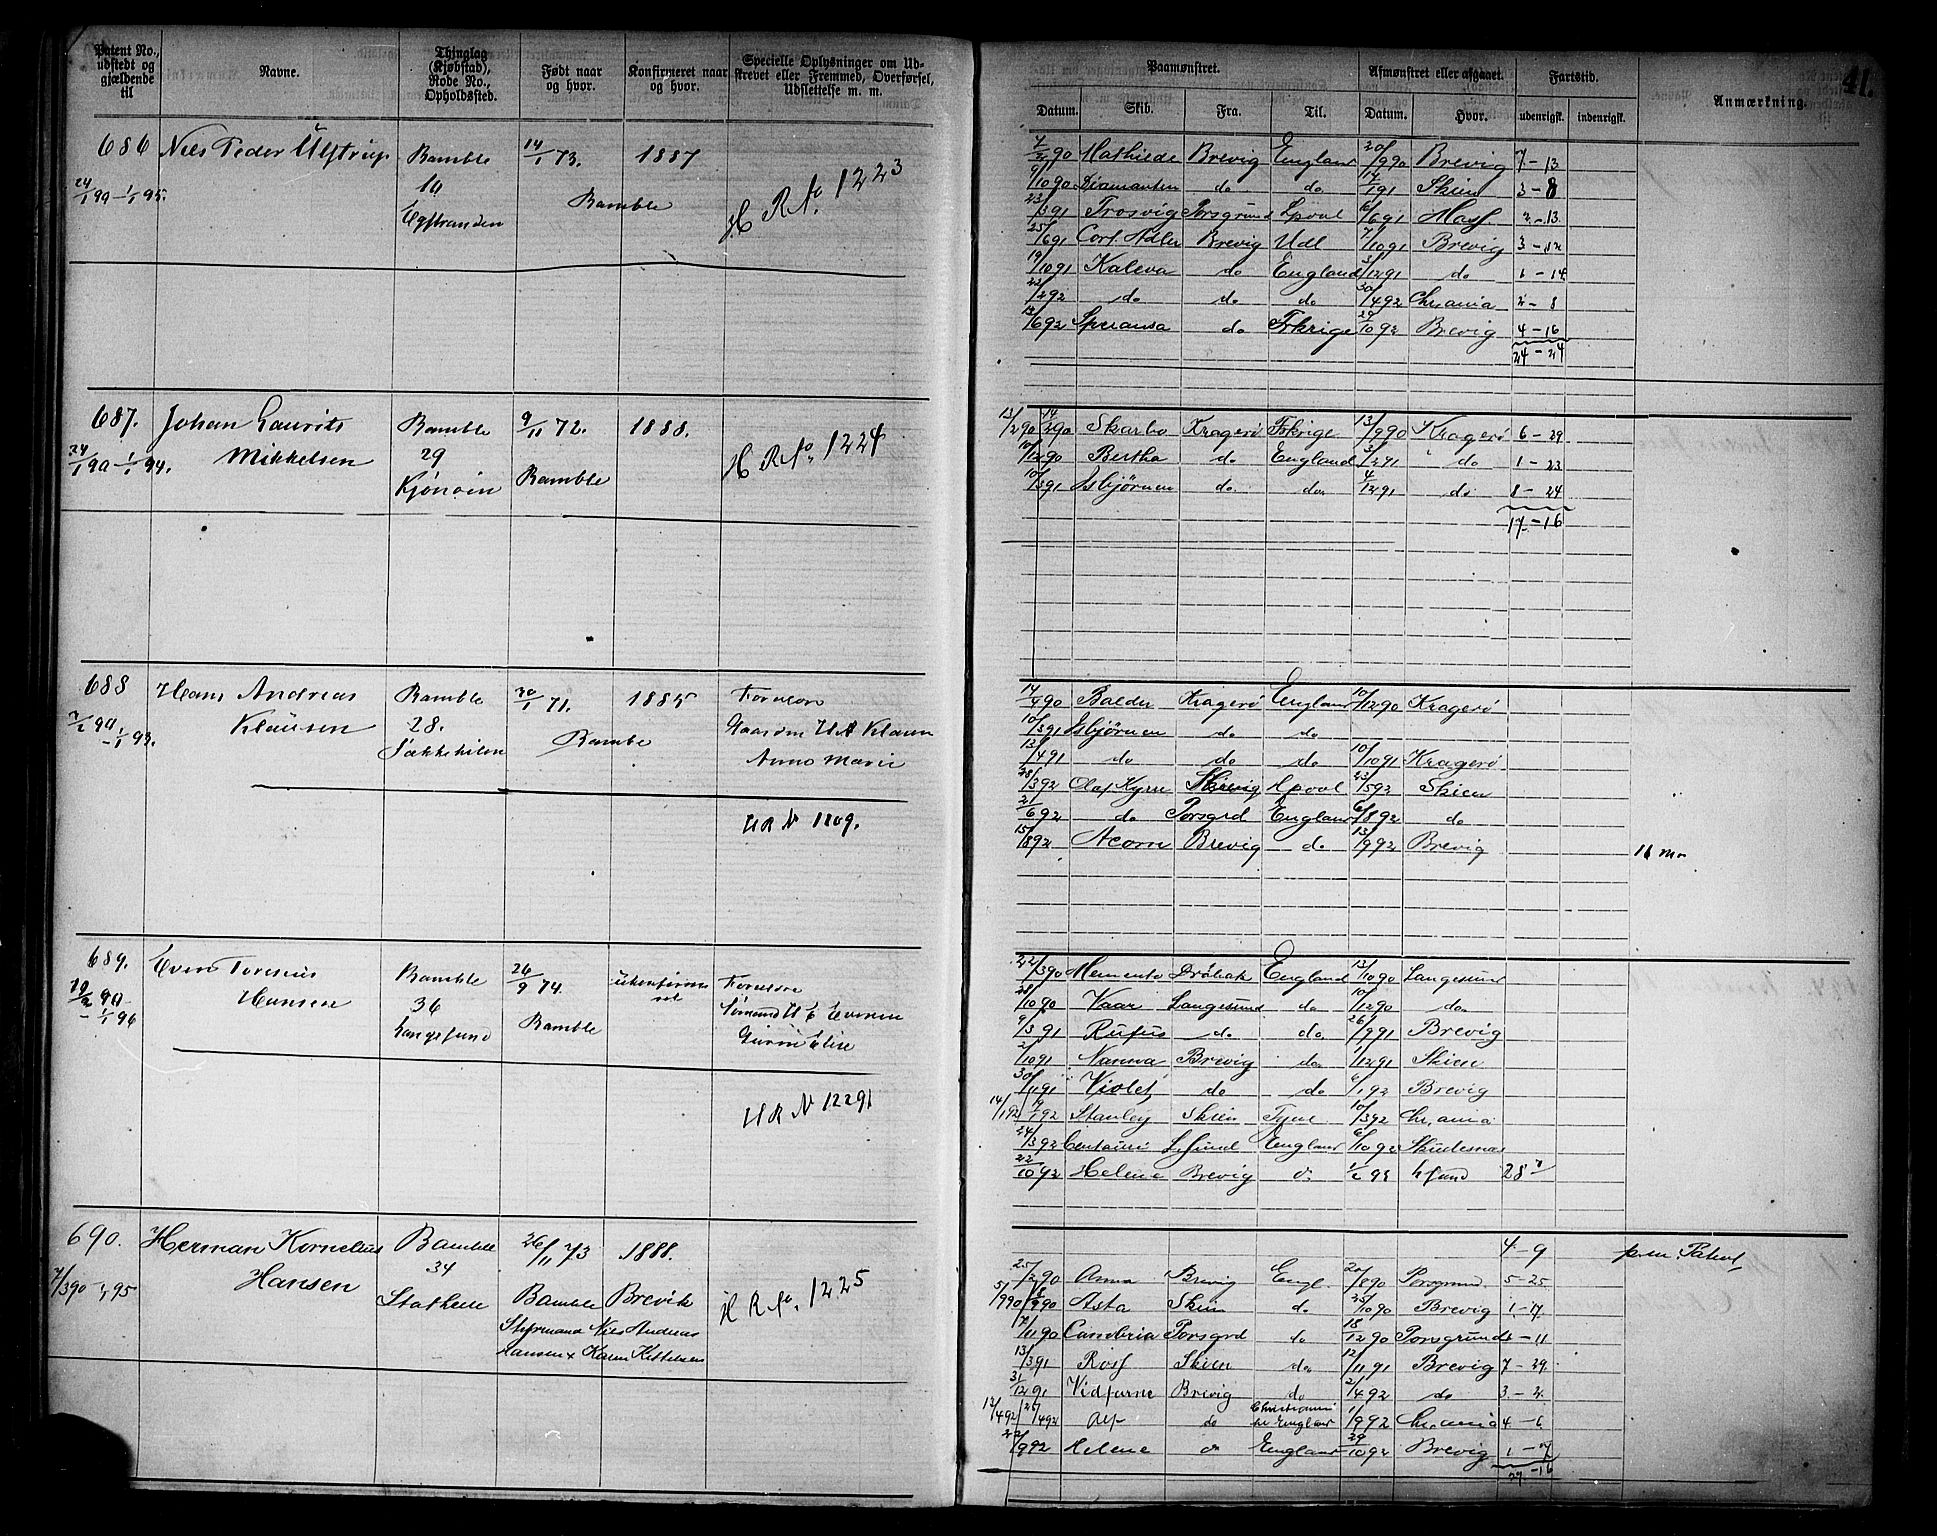 Patent No., udstedt og gjældende til
Navne.
Thinglag (Kjøbstad), Rode No., Opholdssted.
Født naar og hvor.
Konfirmeret naar og hvor.
Specielle Oplysninger om Udskrevet eller Fremmed, Overførsel, Udslettelse m. m.
Paamønstret.
Afmønstret eller afgaaet.
Fartstid.
Anmærkning.
41.
Datum. Skib. Fra. Til. Datum. Hvor. udenrigsk. indenrigsk.
686 Niels Peder Ulstrup Bamble 14/1 73. 1887
24/1 90 - 1/1 95. 10 Bamble H R No. 1223
7/2 90 Mathilde Brevig England 20/9 90 Brevig 7-13
9/10 90 Diamanten do do 14/1 91 Skien 3-8
23/3 91 Trosvig Porsgrund Lpool 16/6 91 2-13
25/6 91 Cort Adler Brevig Udl 7/10 91 Brevig 3-12
19/10 91 Kaleva do England 3/12 91 do 1-14
22/2 92 do do do 30/4 92 Chr.ania 2-8
13/6 92 Speransa do Frkrige 29/10 92 Brevig 4-16
24-24
687. Johan Laurits Mikkelsen Bamble 9/11 72. 1888.
24/1 90 - 1/1 94. 29 Bamble H R No. 1224
13/2 90 14/2 90 Skarbo Kragerø Frkrige 13/9 90 Kragerø 6-29
10/12 90 Bertha do England 3/2 91 do 1-23
10/3 91 Isbjørnen do. do. 4/12 91 do 8-24
17-16
688 Hans Andreas Klausen Bamble 30/1 71. 1885 Forældre
7/2 90 - 1/1 93. 28. Bamble Gaardm H A Klausen
Anne Marie
H R N 1809.
14/4 90 Balder Kragerø England 10/12 90 Kragerø
10/3 91 Isbjørnen do do
13/4 91 do do do 10/10 91 Kragerø
28/3 92 Olaf Kyrre Lpool 23/5 92 Skien
21/6 92 do Porsgrd England 6/8 92 do
15/8 92 Acorn Brevig do 13/9 92 Brevig
11 Mo
689. Even Hansen Bamble 26/9 74. Forældre
19/2 90 - 1/1 96 36 Bamble Sømand H E Evensen
Langesund
H R N 12291
22/3 90 Memento Drøbak England 13/10 90 Langesund
28/10 90 Vaar Langesund do 10/12 90 do
9/3 91 Rufus do do. 26/9 91 Brevig
2/10 91 Nanna Brevig do 1/12 91 Skien
30/11 91 Violet do do 6/1 92 Brevig
14/1 92 19/1 92 Stanley Skien Tyne 10/3 92 Chr.ania
24/3 92 L.sund England 6/10 92 Skudesnæs
22/10 92 Helene Brevig do 1/2 93 L.sund 28 7
690. Herman Kornelius Hansen Bamble 26/11 73 1888.
7/3 90 - 1/1 95 34 Bamble Brevik H R No. 1225
Stathelle
Styrmand Niels Andreas
Hansen & Karen Kittelsen
4-9
25/2 90 Anna Brevig Engl. 20/8 90 Porsgrund 5-25
5/9 90 8/9 90 Asta Skien do 25/10 90 Brevig 1-17
7/11 90 Cambria Porsgrd do 18/12 90 Porsgrund 1-11
13/3 91 Rolf Skien do 12/11 91 Brevig 7-29
31/12 91 Vidfarne Brevig do 2/4 92 do 3-2
12/4 92 26/4 92 Alf do Christiania til England 1/9 92 Chr.ania 4-6
22/9 92 Helene do England 29/10 92 Brevig 1-7